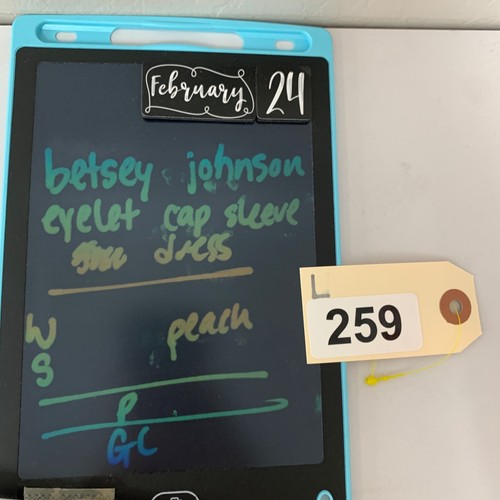 February 24
betsey johnson
eyelet cap sleeve
dress
L
259
W peach
S
P
GC